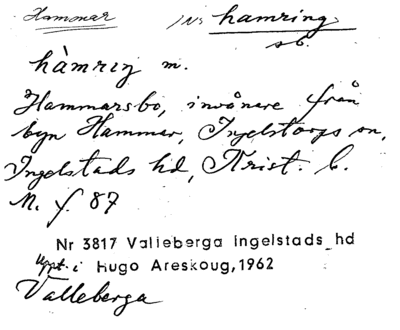 Hammar IN: hamring
sb.
hàmrıŋ m.
Hammarsbo, invånare från
byn Hammar, Ingelstorps sn,
Ingelstads hd, Krist. l.
M. f. 87
Nr 3817 Valleberga Ingelstads hd
Uppt. i Hugo Areskoug, 1962
Valleberga